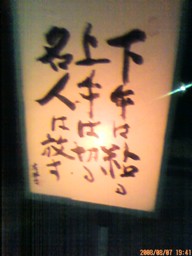 下手は貼る
上手は切る
名人は放す
2009/08/07 19:41